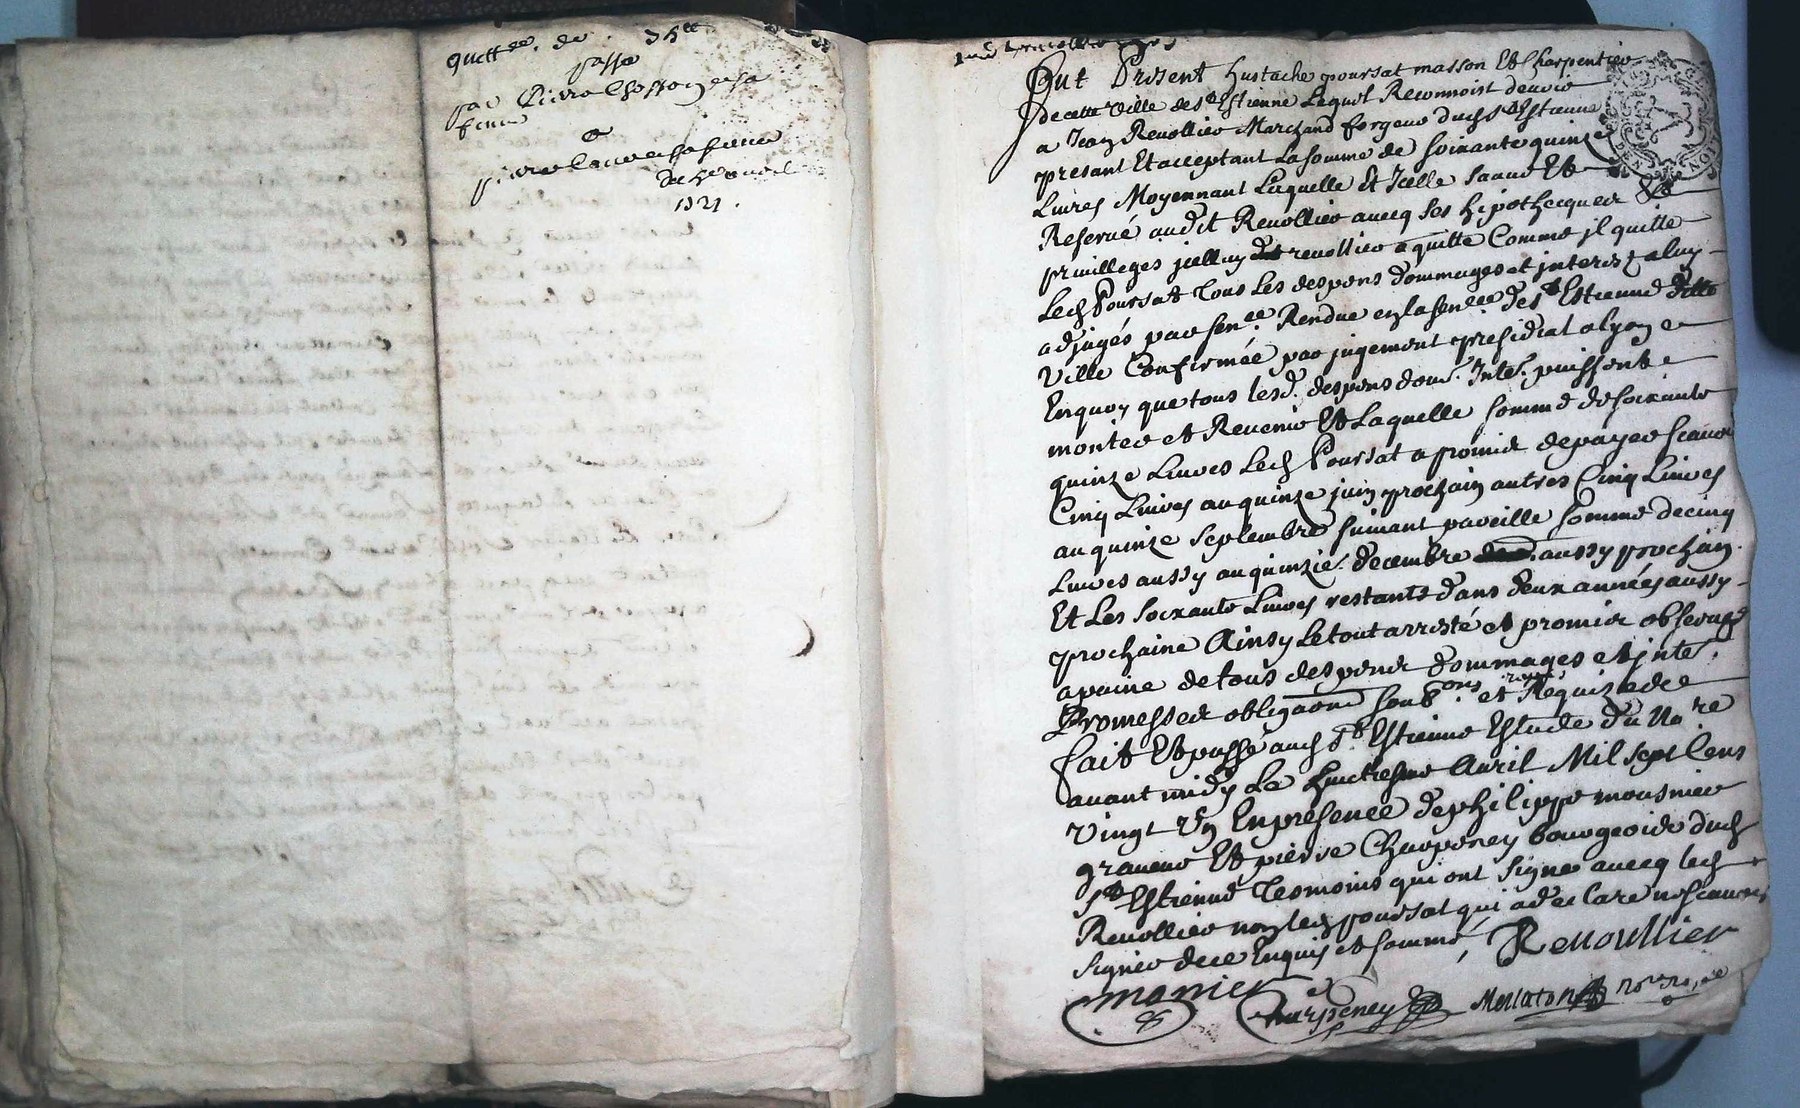 quitt.ce de 35 ll
passe
par Pierre
femme
a
pierre sa femme
du avril
1721.
fut Présent hustache poursat masson Et charpentier
de cette ville de st Estienne Lequel Reconnoist devoir
a Jean Revollier Marchand forgeur dud st Estienne
présant Et acceptant La somme de soixante quinze
Livres Moyennant Laquelle Et Icelle sauve Et
Reservé audit Revollier avecq ses hipothecques Et
privilleges icelluy revollier a quitté Comme jl quitte
Led Poursat Tous Les despens dommages et interestz a luy
adjugés par sen.ce Rendue en la sen.cee de st Estienne ditte
ville Confirmée par jugement presidial a lyon
En quoy que tous lesd. despens dom. Inte.s puissent
monter et Revenir Et Laquelle somme de soixante
quinze Livres Led Poursat a promis de payer scavoir
Cinq Livres au quinze juin prochain autres Cinq Livres
au quinze septembre suivant pareille somme de cinq
Livres aussy au quinzie. decembre aussy prochain.
Et Les soixante Livres restante dans deux années aussy
prochaine Ainsy Le tout arresté et promis observer
a paine de tous despens dommages et inte.
Promesses obligaons soub.ons et Requis de ce
fait Et passé aud st Estienne Estude du No.re
avant midy Le huictiesme Avril Mil sept Cens
vingt Un En presence de philippe mousnier
graveur Et pierre Charpeney bourgeois dud
st Estienne Tesmoins qui ont signé avecq led
Revollier non led poursat qui a declare ne scavoir
signer de ce Enquis et sommé,
Revoullier
monier
Charpeney